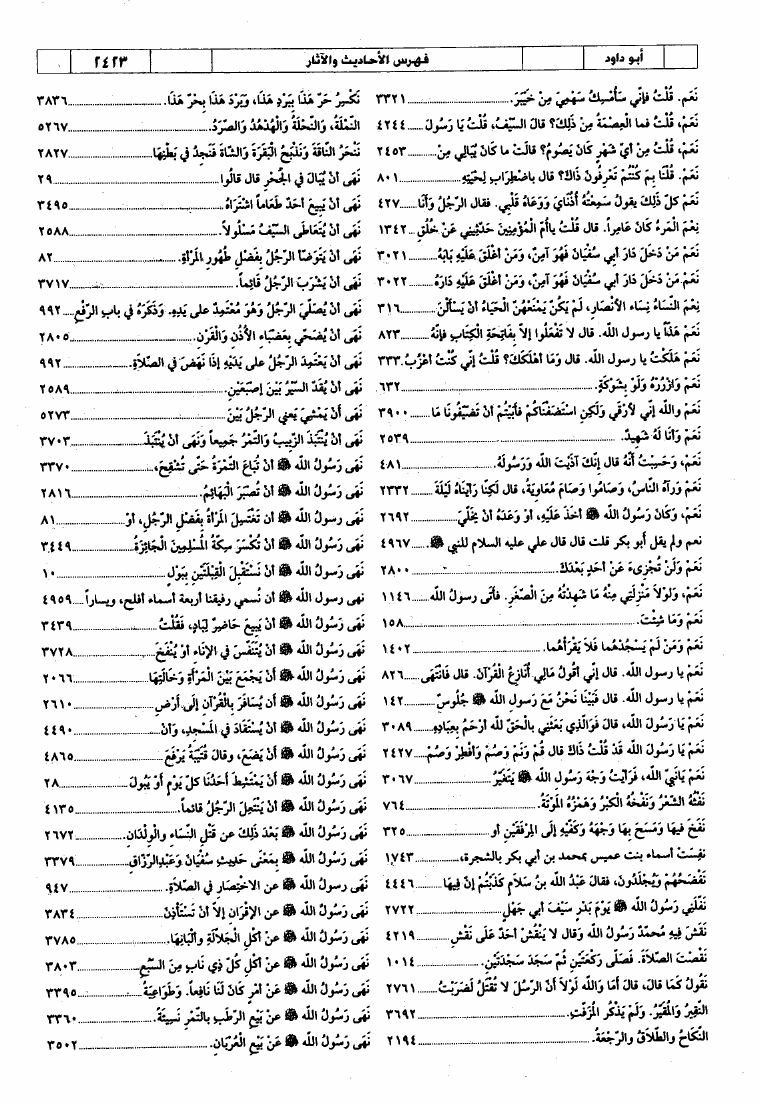 أبو داود
فهرس الأحاديث والآثار
٢٤٢٣
نَعَم. قُلْتُ فإنِّي سَأُمْسِكُ سَهْمِيَ مِنْ خَيْبَرَ. ٣٣٢١
نَعَمْ، قُلْتُ فما العِصْمَةُ مِنْ ذَلِكَ؟ قالَ السَّيْفُ، قُلْتُ يَا رَسُولَ ٤٢٤٤
نَعَمْ، قُلْتُ مِنْ أيِّ شَهْرٍ كَانَ يَصُومُ؟ قالَتْ ما كَانَ يُبَالِي مِنْ ٢٤٥٣
نَعَمْ. قُلْنَا بِمَ كُنْتُمْ تَعْرِفُونَ ذَاكَ؟ قال باضْطِرَابِ لِحْيَتِهِ ٨٠١
نَعَمْ كلّ ذَلِكَ يقولُ سَمِعَتْهُ أُذُنَايَ وَوَعَاهُ قَلْبِي. فقال الرَّجُلُ وَأنَا ٤٢٧
نِعْمَ المَرْءُ كَانَ عَامِراً. قال قُلْتُ ياأُمَّ المُؤْمِنِينَ حَدِّثِيني عَنْ خُلُقِ ١٣٤٢
نَعَمْ مَنْ دَخَلَ دَارَ أبي سُفْيَانَ فَهُوَ آمِنٌ، وَمَنْ أغْلَقَ عَلَيْهِ بَابَهُ ٣٠٢١
نَعَمْ مَنْ دَخَلَ دَارَ أبي سُفْيَانَ فَهُوَ آمِنٌ، وَمَنْ أغْلَقَ عَلَيْهِ دَارَهُ ٣٠٢٢
نِعْمَ النِّسَاءُ نِسَاء الأنْصَارِ، لَمْ يَكُنْ يَمْنَعُهُنَّ الْحَيَاءُ أنْ يَسْألْنَ ٣١٦
نَعَمْ هَذًّا يا رسول الله. قال لا تَفْعَلُوا إلاَّ بِفَاتِحَةِ الْكِتَابِ فإنَّهُ ٨٢٣
نَعَمْ هَلَكْتُ يا رسول الله. قال وَمَا أهْلَكَكَ؟ قُلْتُ إنِّي كُنْتُ أعْزُبُ. ٣٣٣
نَعَمْ وَازْرُرْهُ وَلَوْ بِشَوْكَةٍ. ٦٣٢
نَعَمْ والله إنِّي لأَرْقِي وَلَكِنِ اسْتَضَفْنَاكُم فأبَيْتُمْ أنْ تُضَيِّفُونَا مَا ٣٩٠٠
نَعَمْ وَأنَا لَهُ شَهِيدٌ. ٢٥٣٩
نَعَمْ، وَحَسِبْتُ أنَّهُ قال إنَّكَ آذَيْتَ الله وَرَسُولَهُ. ٤٨١
نَعَمْ وَرَآهُ النَّاسُ، وَصَامُوا وَصَامَ مُعَاوِيَةُ، قال لَكِنَّا رَأيْنَاهُ لَيْلَةَ ٢٣٣٢
نَعَمْ، وَكَانَ رَسُولُ الله ﷺ أخَذَ عَلَيْهِ، أوْ وَعَدَهُ أنْ يُخَلِّيَ ٢٦٩٢
نعم ولم يقل أبو بكر قلت قال قال علي عليه السلام للنبي ﷺ. ٤٩٦٧
نَعَمْ وَلَنْ تُجْزِىءَ عَنْ أحَدٍ بَعْدَكَ. ٢٨٠٠
نَعَمْ، وَلَوْلاَ مَنْزِلَتِي مِنْهُ مَا شَهِدْتُهُ مِنَ الصِّغَرِ. فأتَى رسولُ الله ١١٤٦
نَعَمْ وَمَا شِئْتَ. ١٥٨
نَعَمْ وَمَنْ لَمْ يَسْجُدْهُما فَلاَ يَقْرَأْهُما. ١٤٠٢
نَعَمْ يا رسول الله. قال إنِّي أقُولُ مَالِي أُنَازَعُ القُرْآنَ. قال فَانْتَهَى ٨٢٦
نَعَمْ يا رسول الله. قال فَبَيْنَا نَحْنُ مَعَ رَسولِ الله ﷺ جُلُوسٌ ١٤٢
نَعَمْ يَا رَسُولَ الله، قالَ فَوَالَّذِي بَعَثَنِي بالْحَقِّ لله أرْحَمُ بِعِبَادِهِ ٣٠٨٩
نَعَمْ يَا رَسُولَ الله قَدْ قُلْتُ ذَاكَ قال قُمْ وَنَمْ وَصُمْ وَأفْطِرْ وَصُمْ ٢٤٢٧
نَعَمْ يَانَبيَّ الله، فَرَأيْتُ وَجْهَ رَسُولِ الله ﷺ يَتَغَيَّرُ ٣٠٦٧
نَفْثُهُ الشِّعْرُ وَنَفْخُهُ الْكِبْرُ وَهَمْزُهُ المُوْتَةُ. ٧٦٤
نَفَخَ فِيهَا وَمَسَحَ بِهَا وَجْهَهُ وَكَفَّيْهِ إلَى المِرْفَقَيْنِ أو ٣٢٥
نفِسَتْ أسماء بنت عميس بمحمد بن أبي بكر بالشجرة، ١٧٤٣
نَفْضَحُهُمْ وَيُجْلَدُونَ، فقالَ عَبْدُ الله بنُ سَلاَمٍ كَذَبْتُمْ إنَّ فِيهَا ٤٤٤٦
نَفَّلَنِي رَسُولُ الله ﷺ يَوْمَ بَدْرٍ سَيْفَ أبي جَهْلٍ ٢٧٢٢
نَقَشَ فِيهِ مُحمَّدٌ رَسُولُ الله وَقال لا يَنْقُشْ أحَدٌ عَلَى نَقْشِ ٤٢١٩
نَقَصْتَ الصَّلاَةَ. فَصَلَّى رَكْعَتَيْنِ ثُمَّ سَجَدَ سَجْدَتَيْنِ. ١٠١٤
نَقُولُ كَمَا قال، قال أمَا وَالله لَوْلاَ أنَّ الرُّسُلَ لاَ تُقْتَلُ لَضَرَبْتُ ٢٧٦١
النَّقِيرُ وَالمُقَيَّرُ. وَلَمْ يَذْكُر المُزَفَّتِ. ٣٦٩٢
النِّكَاحُ والطَّلاَقُ والرَّجْعَةُ. ٢١٩٤
نَكْسِرُ حَرَّ هَذَا بِبَرْدِ هَذَا، وَبَرْدَ هَذَا بِحَرِّ هَذَا. ٣٨٣٦
النَّمْلَةُ، وَالنَّحْلَةُ وَالْهُدْهُدُ وَالصُّرَدُ. ٥٢٦٧
نَنْحَرُ النَّاقَةَ وَنَذْبَحُ الْبَقَرَةَ وَالشَّاةَ فَنَجِدُ في بَطْنِهَا ٢٨٢٧
نَهَى أنْ يُبَالَ في الجُحْرِ قال قالُوا ٢٩
نَهَى أنْ يَبِيعَ أحَدٌ طَعَاماً اشْتَرَاهُ ٣٤٩٥
نَهَى أنْ يُتَعَاطَى السَّيْفُ مَسْلُولاً. ٢٥٨٨
نَهَى أنْ يَتَوَضّأ الرَّجُلُ بِفَضْلِ طَهُورِ المَرْأةِ. ٨٢
نَهَى أنْ يَشْرَبَ الرَّجُلُ قَائِماً. ٣٧١٧
نَهَى أنْ يُصَلِّيَ الرَّجُلُ وَهُوَ مُعْتَمِدٌ على يَدِهِ. وَذَكَرَهُ في باب الرَّفْعِ ٩٩٢
نَهَى أنْ يُضَحَّي بِعَضْبَاءِ الأُذُنِ وَالْقَرْنِ. ٢٨٠٥
نَهَى أنْ يَعْتَمِدَ الرَّجُلُ على يَدَيْهِ إذَا نَهَضَ في الصَّلاَةِ. ٩٩٢
نَهَى أنْ يُقَدَّ السَّيْرُ بَيْنَ إصْبَعَيْنِ. ٢٥٨٩
نَهَى أنْ يَمْشِيَ يَعني الرَّجُلُ بَيْنَ ٥٢٧٣
نَهَى أنْ يُنْتَبَذَ الزَّبِيبُ وَالتَّمْرُ جَمِيعاً وَنَهَى أنْ يُنْتَبَذَ ٣٧٠٣
نَهَى رَسُولُ الله ﷺ أنْ تُبَاعَ الثَّمْرَةُ حَتَّى تُشْقِحَ، ٣٣٧٠
نَهَى رَسُولُ الله ﷺ أنْ تُصْبَرَ الْبَهَائِمُ. ٢٨١٦
نَهَى رسول الله ﷺ أن تَغْتَسِلَ المَرْأةُ بِفَضْلِ الرَّجُلِ، أوْ ٨١
نَهَى رَسُولُ الله ﷺ أنْ تُكْسَرَ سِكَّةُ المُسْلِمِينَ الْجَائِزَةُ ٣٤٤٩
نَهَى رَسُولُ الله ﷺ أنْ نَسْتَقْبِلَ الْقِبْلَتَيْنِ بِبَوْلٍ ١٠
نهى رسول الله ﷺ أن نُسمي رفيقنا أربعة أسماء أفلح، ويساراً ٤٩٥٩
نَهَى رَسُولُ الله ﷺ أنْ يَبِيعَ حَاضِرٌ لِبَادٍ، فَقُلْتُ ٣٤٣٩
نَهَى رَسُولُ الله ﷺ أنْ يُتَنَفَّسَ في الإنَاءِ أوْ يُنْفَخَ ٣٧٢٨
نَهَى رَسُولُ الله ﷺ أنْ يُجْمَعَ بَيْنَ المَرْأةِ وَخَالَتِهَا ٢٠٦٦
نَهَى رَسُولُ الله ﷺ أن يُسَافَرَ بِالْقُرْآنِ إلَى أرْضِ ٢٦١٠
نَهَى رَسُولُ الله ﷺ أنْ يُسْتَقَادَ في المَسْجِدِ، وَأنْ ٤٤٩٠
نَهَى رَسُولُ الله ﷺ أنْ يَضَعَ، وقال قُتَيْبَةُ يَرْفَعَ ٤٨٦٥
نَهَى رَسُولُ الله ﷺ أنْ يَمْتَشِطَ أحَدُنَا كلَّ يَوْمٍ أوْ يَبُولَ ٢٨
نَهَى رَسُولُ الله ﷺ أنْ يَنْتَعِلَ الرَّجُلُ قَائماً. ٤١٣٥
نَهَى رَسُولُ الله ﷺ بَعْدَ ذَلِكَ عن قَتْلِ النِّسَاءِ وَالْوِلْدَانِ. ٢٦٧٢
نَهَى رَسُولُ الله ﷺ بِمَعْنَى حَدِيثِ سُفْيَانَ وَعَبْدِالرَّزَّاقِ ٣٣٧٩
نَهَى رسولُ الله ﷺ عن الاخْتِصَارِ في الصَّلاَةِ. ٩٤٧
نَهَى رَسُولُ الله ﷺ عن الإقْرَانِ إلاَّ أنْ تَسْتَأْذِنَ ٣٨٣٤
نَهَى رَسُولُ الله ﷺ عنْ أكْلِ الْجَلاَّلَةِ وَألْبَانِهَا. ٣٧٨٥
نَهَى رَسُولُ الله ﷺ عن أكْلِ كُلِّ ذِي نَابٍ مِنَ السَّبُعِ ٣٨٠٣
نَهَى رَسُولُ الله ﷺ عَنْ أمْرٍ كَانَ لَنَا نَافِعاً. وَطَوَاعِيَةُ ٣٣٩٥
نَهَى رَسُولُ الله ﷺ عنْ بَيْعِ الرُّطَبِ بالتَّمْرِ نَسِيئَةً. ٣٣٦٠
نَهَى رَسُولُ الله ﷺ عَنْ بَيْعِ الْعُرْبَانِ. ٣٥٠٢